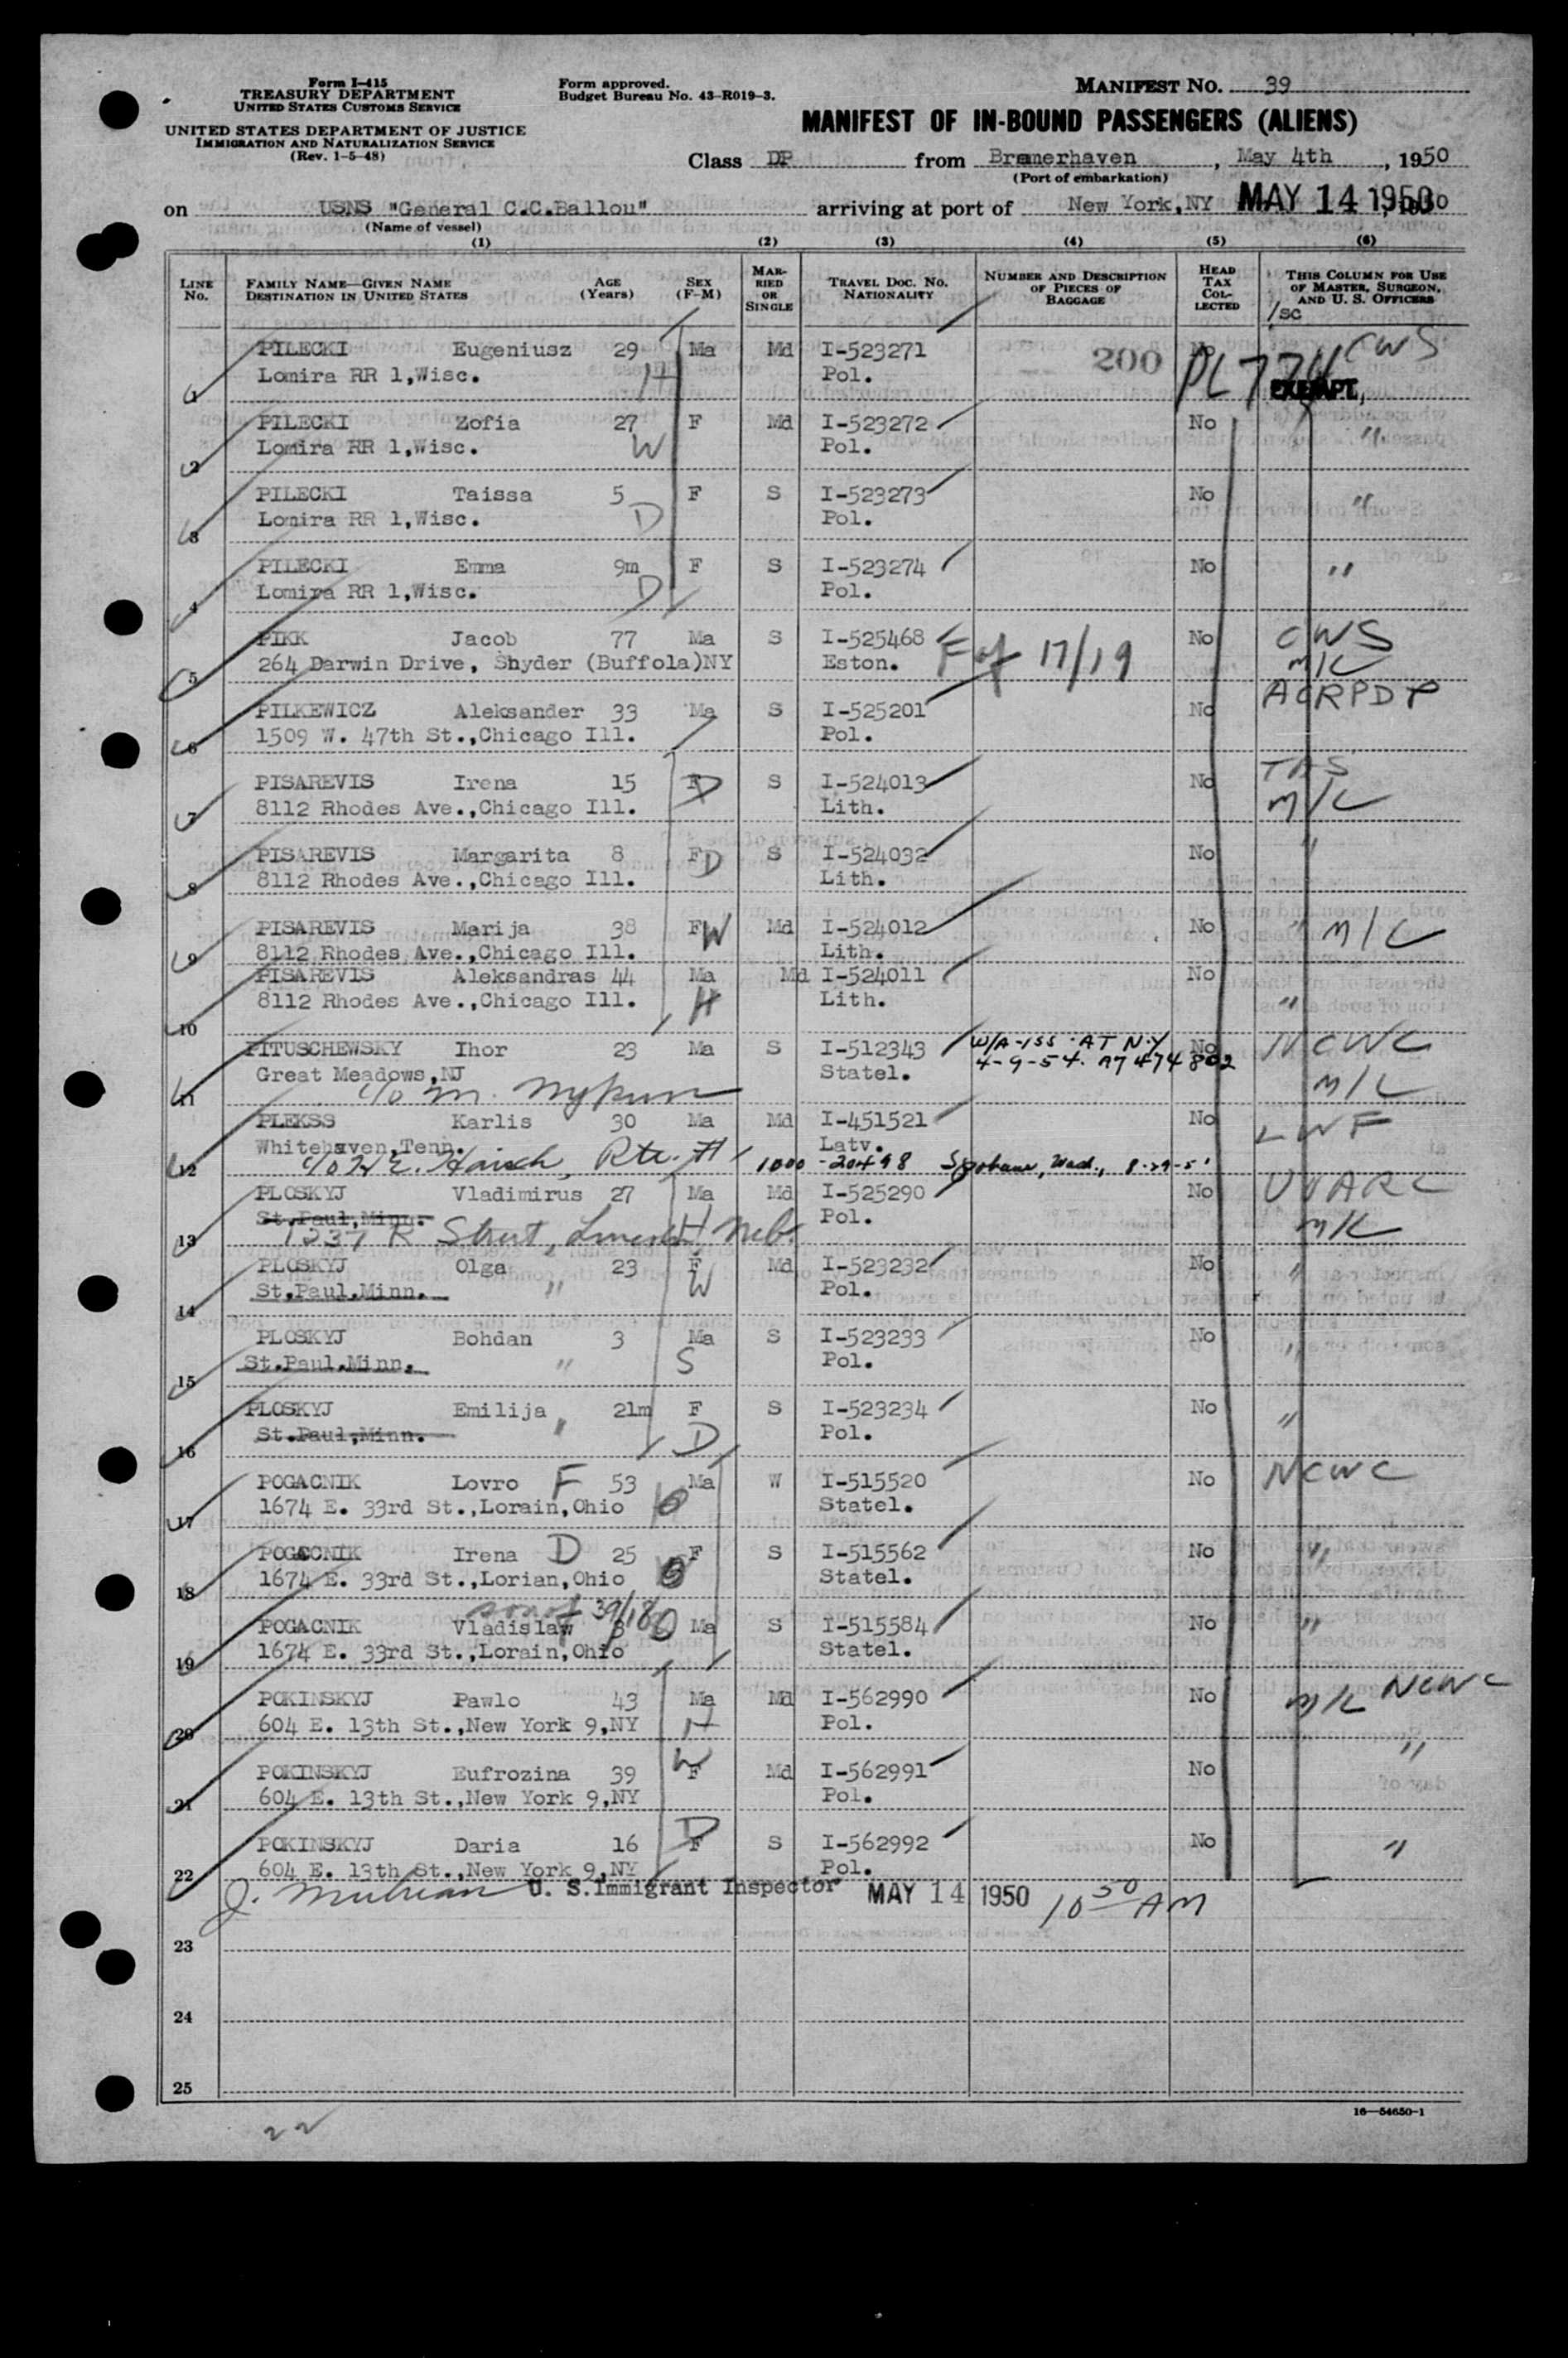 Form I-415
TREASURY DEPARTMENT
UNITED STATES CUSTOMS SERVICE
UNITED STATES DEPARTMENT OF JUSTICE
IMMIGRATION AND NATURALIZATION SERVICE
(Rev. 1-5-48)
Form approved.
Budget Bureau No. 43-R019-3.
MANIFEST NO. 39
MANIFEST OF IN-BOUND PASSENGERS (ALIENS)
Class DP from Bremerhaven, May 4th, 1950
(Port of embarkation)
on USNS "General C.C.Ballou" arriving at port of New York,NY MAY 14 1950
(Name of vessel)
(1) (2) (3) (4) (5) (6)
LINE No. FAMILY NAME—GIVEN NAME DESTINATION IN UNITED STATES AGE (Years) SEX (F-M) MARRIED OR SINGLE TRAVEL DOC. NO. NATIONALITY NUMBER AND DESCRIPTION OF PIECES OF BAGGAGE HEAD TAX COLLECTED THIS COLUMN FOR USE OF MASTER, SURGEON, AND U. S. OFFICERS
/sc
PILECKI Eugeniusz 29 Ma Md I-523271 200 No PL 774 CWS
1 Lomira RR 1,Wisc. H Pol. EXEMPT,
PILECKI Zofia 27 F Md I-523272 No "
2 Lomira RR 1,Wisc. W Pol.
PILECKI Taissa 5 F S I-523273 No "
3 Lomira RR 1,Wisc. D Pol.
PILECKI Emma 9m F S I-523274 No "
4 Lomira RR 1,Wisc. D Pol.
PIKK Jacob 77 Ma S I-525468 F of 17/19 No CWS
5 264 Darwin Drive, Snyder (Buffola)NY Eston. M/L
PILKEWICZ Aleksander 33 Ma S I-525201 No ACRPDP
6 1509 W. 47th St.,Chicago Ill. Pol.
PISAREVIS Irena 15 F D S I-524013 No
7 8112 Rhodes Ave.,Chicago Ill. Lith. M/L
PISAREVIS Margarita 8 F D S I-524032 No "
8 8112 Rhodes Ave.,Chicago Ill. Lith.
PISAREVIS Marija 38 F W Md I-524012 No " M/L
9 8112 Rhodes Ave.,Chicago Ill. Lith.
PISAREVIS Aleksandras 44 Ma Md I-524011 No
10 8112 Rhodes Ave.,Chicago Ill. H Lith. "
PITUSCHEWSKY Ihor 23 Ma S I-512343 W/A-155 AT N.Y No NCWC
Great Meadows,NJ Statel. 4-9-54. A7 474 802
11 c/o M. M/L
PLEKSS Karlis 30 Ma Md I-451521 No LWF
Whitehaven,Tenn. Latv.
12 c/o Rte. #1 1000-20498 Spokane, Wash., 8-29-5
PLOSKYJ Vladimirus 27 Ma Md I-525290 No UUARC
St.Paul,Minn. Pol.
13 1237 R Street, Lincoln H Neb. M/L
PLOSKYJ Olga 23 F Md I-523232 No "
14 St.Paul,Minn. " W Pol.
PLOSKYJ Bohdan 3 Ma S I-523233 No "
15 St.Paul,Minn. " S Pol.
PLOSKYJ Emilija 21m F S I-523234 No "
16 St.Paul,Minn. " D Pol.
POGACNIK Lovro F 53 Ma W I-515520 No NCWC
17 1674 E. 33rd St.,Lorain,Ohio Statel.
POGACNIK Irena D 25 F S I-515562 No "
18 1674 E. 33rd St.,Lorian,Ohio Statel.
son of 39/18
POGACNIK Vladislaw 3 Ma S I-515584 No "
19 1674 E. 33rd St.,Lorain,Ohio Statel.
POKINSKYJ Pawlo 43 Ma Md I-562990 No M/L NCWC
20 604 E. 13th St.,New York 9,NY H Pol.
POKINSKYJ Eufrozina 39 W F Md I-562991 No "
21 604 E. 13th St.,New York 9,NY Pol.
POKINSKYJ Daria 16 D F S I-562992 No "
22 604 E. 13th St.,New York 9,NY Pol.
U. S. Immigrant Inspector MAY 14 1950 10 50 AM
23
24
25
16—54650-1
22